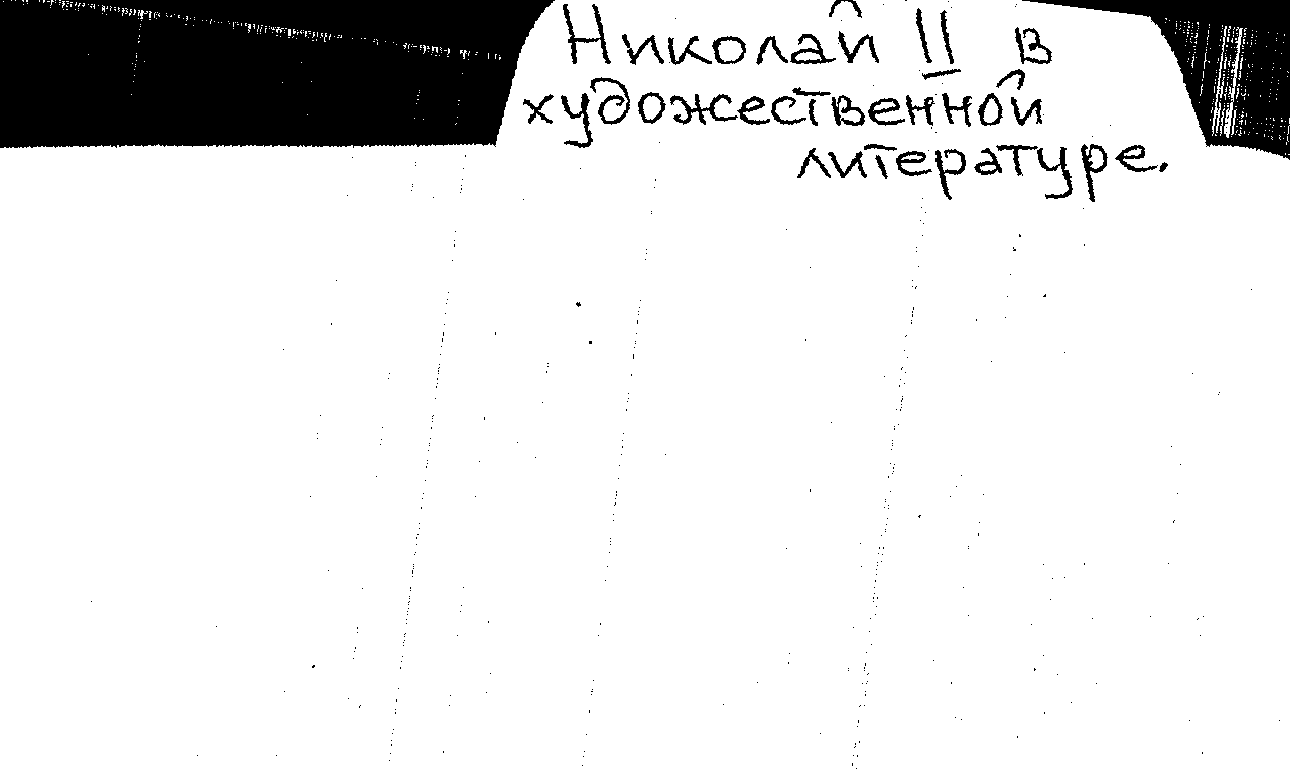 Николай II в
художественной
литературе.